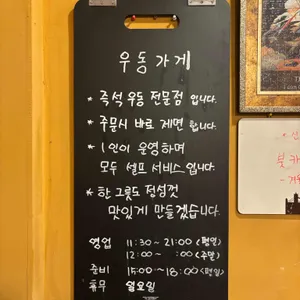 우동가게
* 즉석 우동 전문점 입니다.
* 주문시 바로 제면 합니다.
* 1인이 운영하며
모두 셀프 서비스 입니다.
* 한 그릇도 정성껏
맛있게 만들겠습니다.
영업 11:30 ~ 21:00 (평일)
12:00 ~ :00 (주말)
준비 15:00 ~ 18:00 (평일)
휴무 월요일
북카